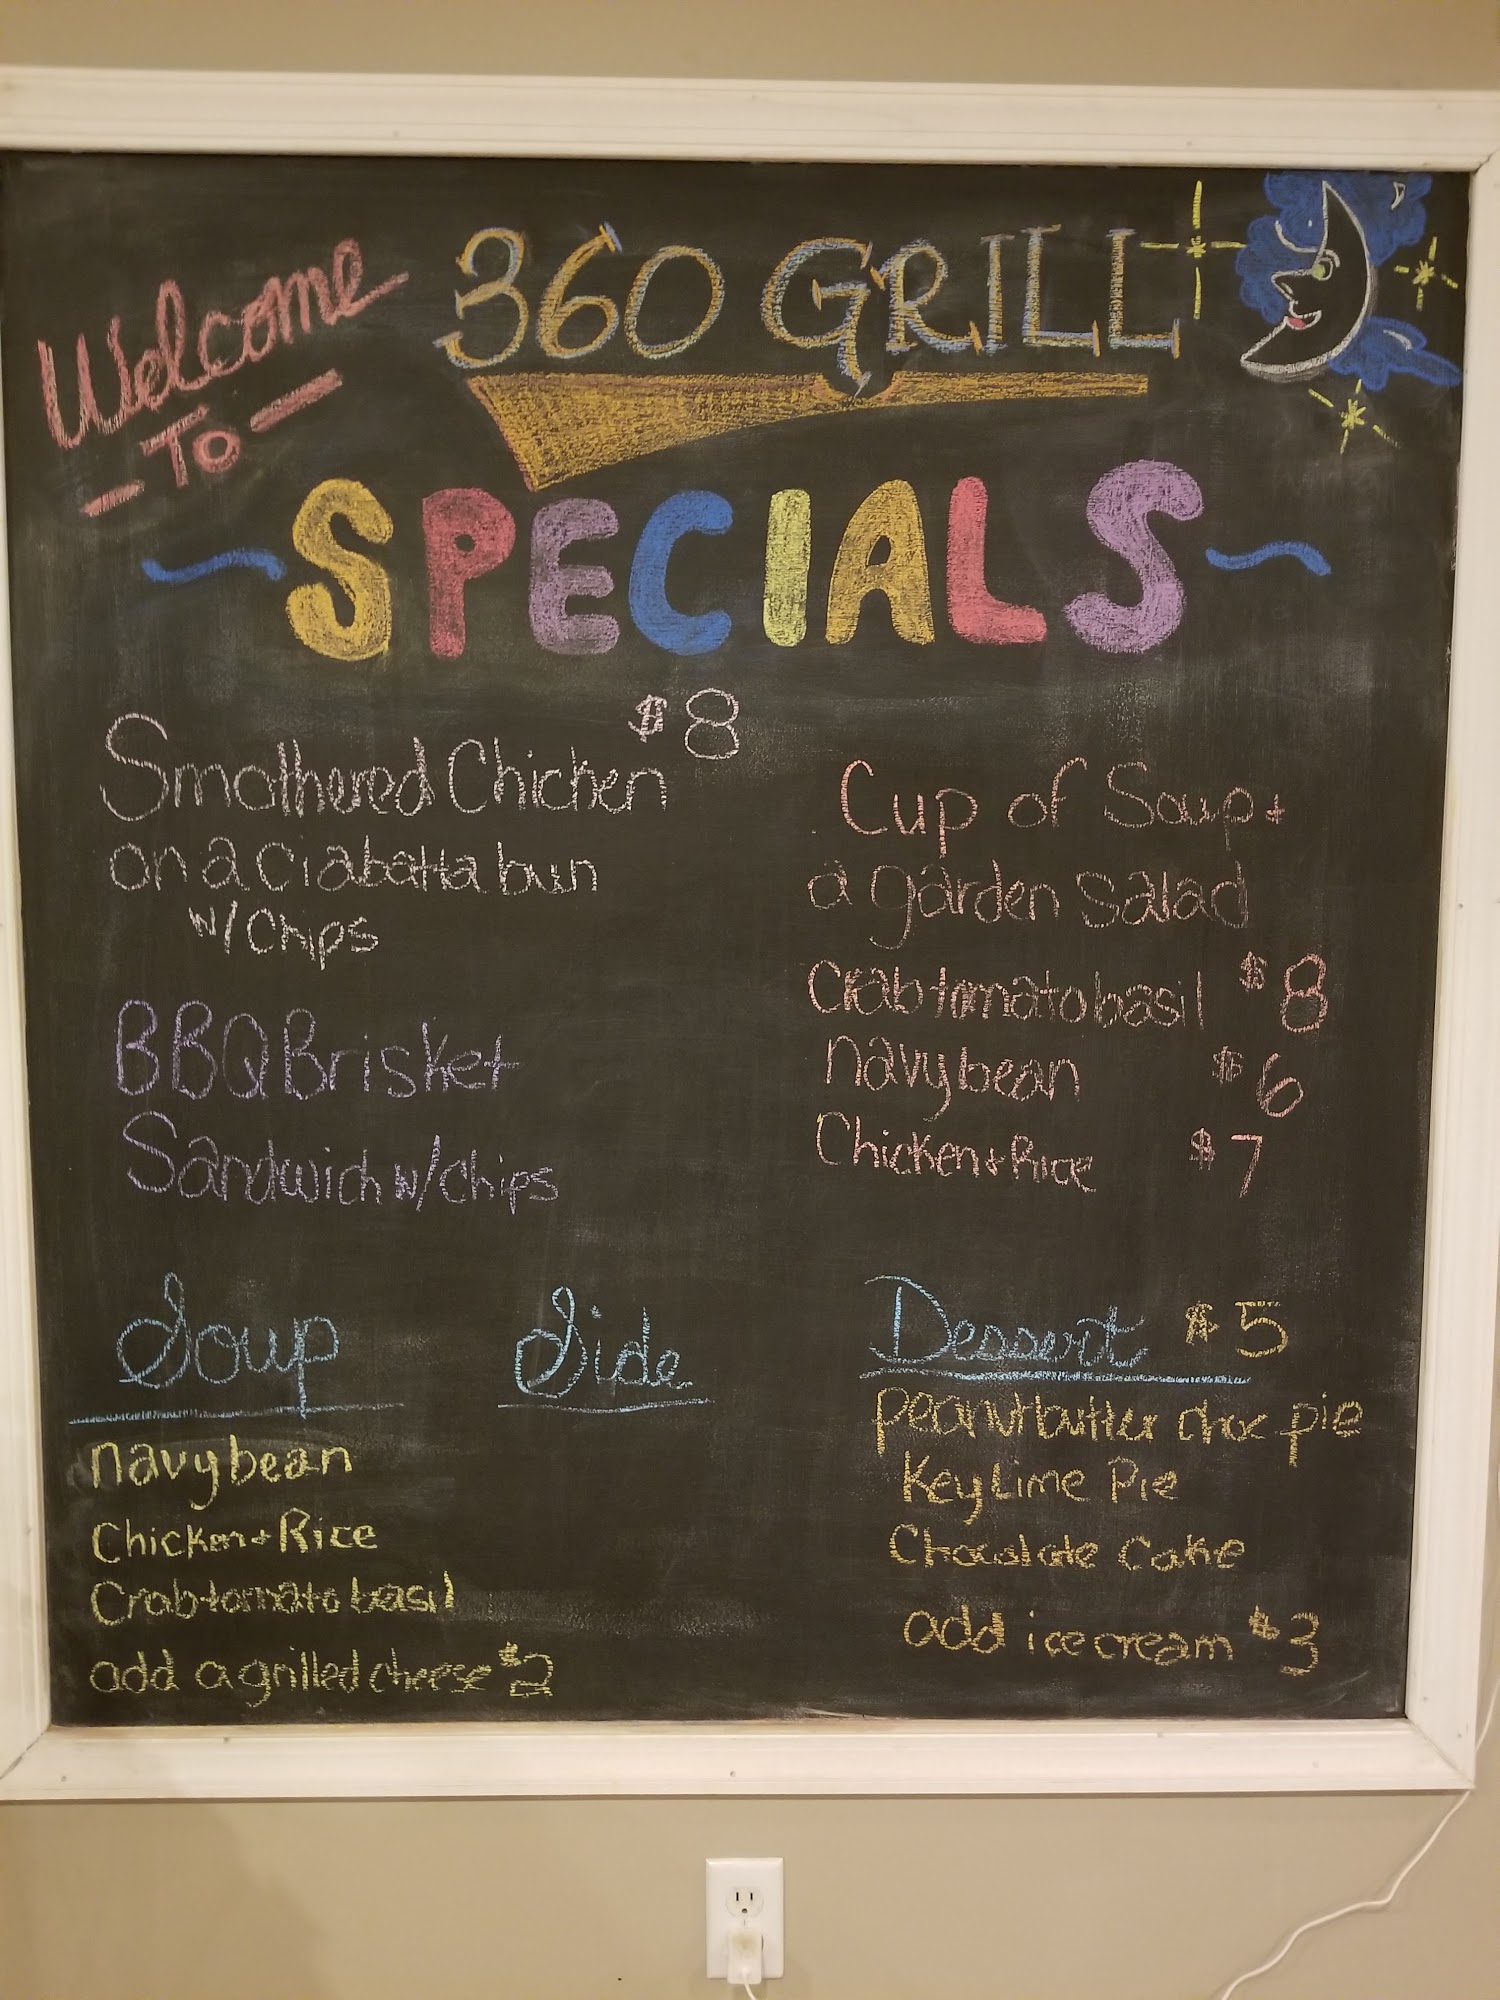 Welcome
To
360 GRILL
SPECIALS
$8
Smothered Chicken
on a Ciabatta bun
w/Chips
BBQ Brisket
Sandwich w/Chips
Cup of Soup +
a garden salad
Crab tomato basil $8
navy bean $6
Chicken + Rice $7
Soup
navy bean
Chicken + Rice
Crab tomato basil
add a grilled cheese $2
Side
Dessert $5
peanutbutter choc pie
Key Lime Pie
Chocolate Cake
add ice cream $3